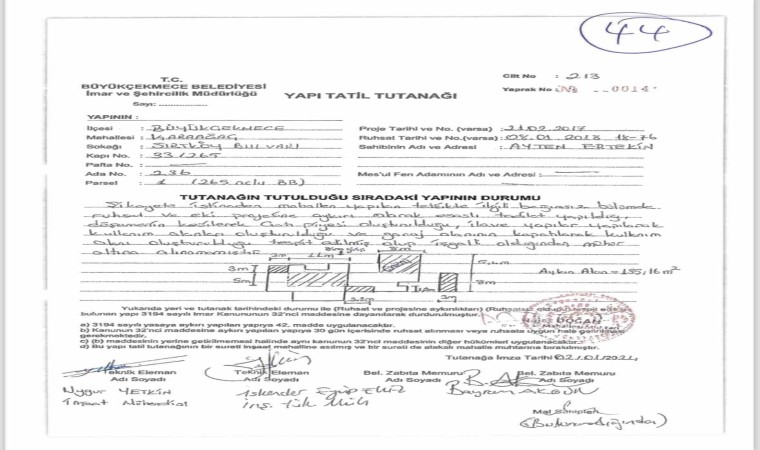 44
T.C.
BÜYÜKÇEKMECE BELEDİYESİ
İmar ve Şehircilik Müdürlüğü
Sayı: ................
YAPI TATİL TUTANAĞI
Cilt No : 213
Yaprak No
YAPININ :
İlçesi : BÜYÜKÇEKMECE
Mahallesi : KARAAĞAÇ
Sokağı : SIRTKÖY BULVARI
Kapı No. : 33/265
Pafta No. :
Ada No. : 236
Parsel : 1 (265 nolu BB)
Proje Tarihi ve No. (varsa) : 21.09.2017
Ruhsat Tarihi ve No.(varsa) : 08.01.2018 18-76
Sahibinin Adı ve Adresi : AYTEN ERTEKİN
Mes'ul Fen Adamının Adı ve Adresi :
TUTANAĞIN TUTULDUĞU SIRADAKİ YAPININ DURUMU
Şikayete istinaden mahallen yapılan tetkikte ilgili bağımsız bölümde
ruhsat ve eki projesine aykırı olarak esaslı tadilat yapıldığı,
döşemenin kesilerek Çatı piyesi oluşturulduğu, ilave yapılar yapılarak
kullanım alanları oluşturulduğu ve garaj alanının kapatılarak kullanım
alanı oluşturulduğu tespit edilmiş olup işgalli olduğundan mühür
altına alınamamıştır
3m
5m
11m
3m
Aykırı Alan = 195,16 m²
Yukarıda yeri ve tutanak tarihindeki durumu ile (Ruhsat ve projesine aykırılıkları) (Ruhsatsız olduğu) tespit edilen
bulunan yapı 3194 sayılı İmar Kanununun 32'nci maddesine dayanılarak durdurulmuştur.
a) 3194 sayılı yasaya aykırı yapılan yapıya 42. madde uygulanacaktır.
b) Kanunun 32'nci maddesine aykırı yapılan yapıya 30 gün içerisinde ruhsat alınması veya ruhsata uygun hale getirilmesi
gerekmektedir.
c) (b) maddesinin yerine getirilmemesi halinde aynı kanunun 32'nci maddesinin diğer hükümleri uygulanacaktır.
d) Bu yapı tatil tutanağının bir sureti inşaat mahalline asılmış ve bir sureti de alakalı mahalle muhtarına bırakılmıştır.
DOĞAN
Tutanağa İmza Tarihi 02/01/2024
Teknik Eleman
Adı Soyadı
Teknik Eleman
Adı Soyadı
Bel. Zabıta Memuru
Adı Soyadı
Bel. Zabıta Memuru
Adı Soyadı
YETKİN
İnşaat Mühendisi
İskender
İnş. Yük Müh
Bayram AKGÜN
Mal Sahibi
(Bulunmadığından)